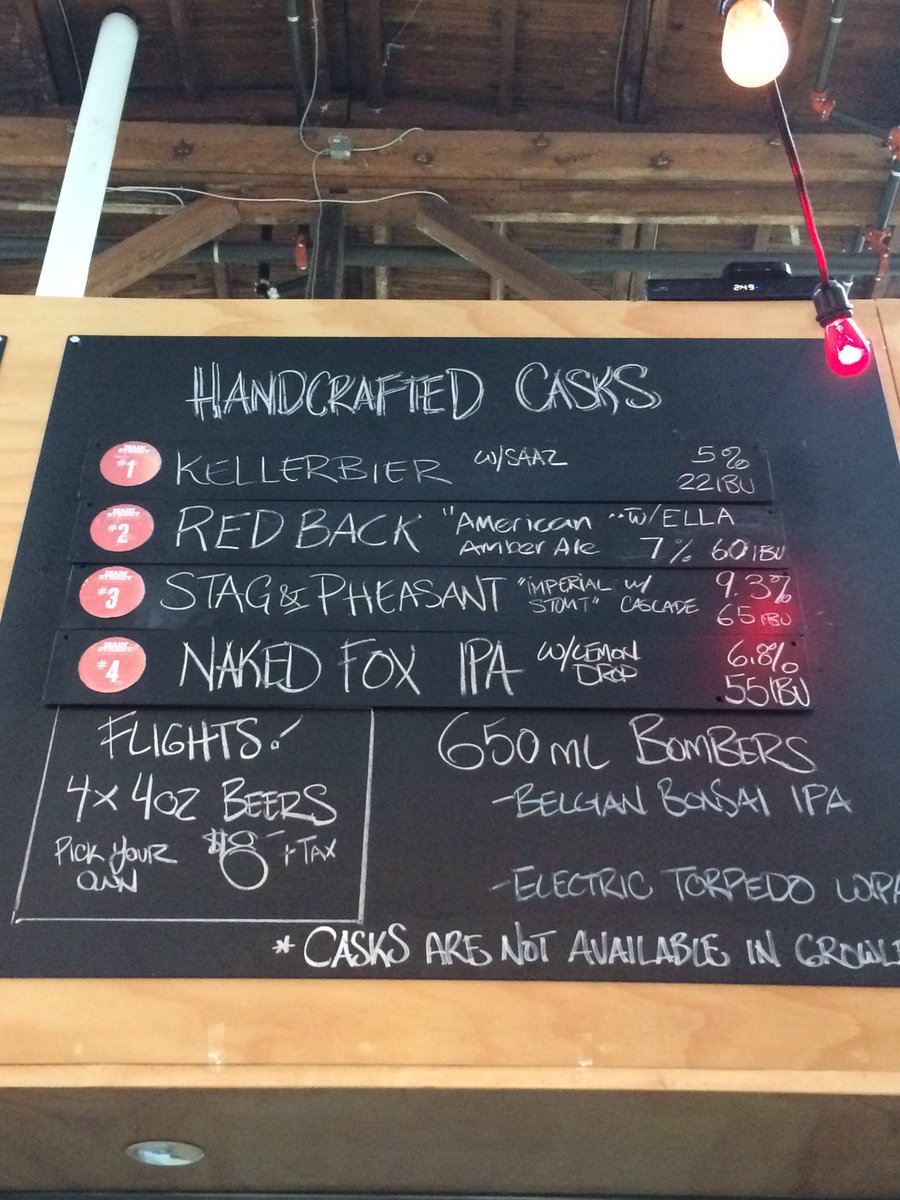 249
HANDCRAFTED CASKS
MAIN STREET #1 KELLERBIER W/SAAZ 5%
22IBU
MAIN STREET #2 RED BACK "American Amber Ale" W/ELLA
7% 60IBU
MAIN STREET #3 STAG & PHEASANT "IMPERIAL STOUT" W/ CASCADE 9.3%
65IBU
MAIN STREET #4 NAKED FOX IPA W/LEMON DROP 6.8%
55IBU
FLIGHTS!
4x4oz BEERS
PICK YOUR OWN $8- +TAX
650ML BOMBERS
-BELGIAN BONSAI IPA
-ELECTRIC TORPEDO WIPA
* CASKS ARE NOT AVAILABLE IN GROWLE